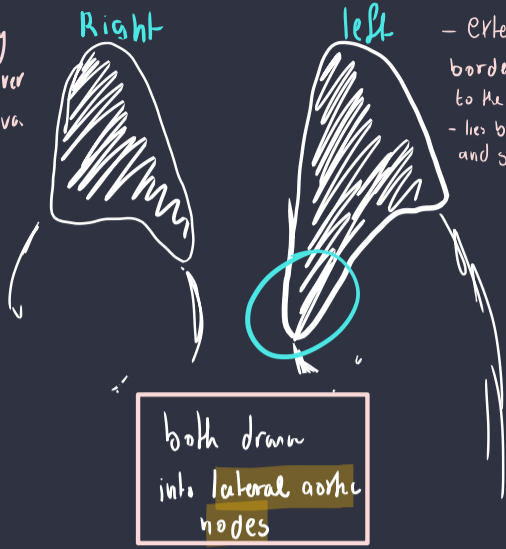 Right
left
va.
- exte
borde
to the
- lies b
and s
both drain
into lateral aortic
nodes